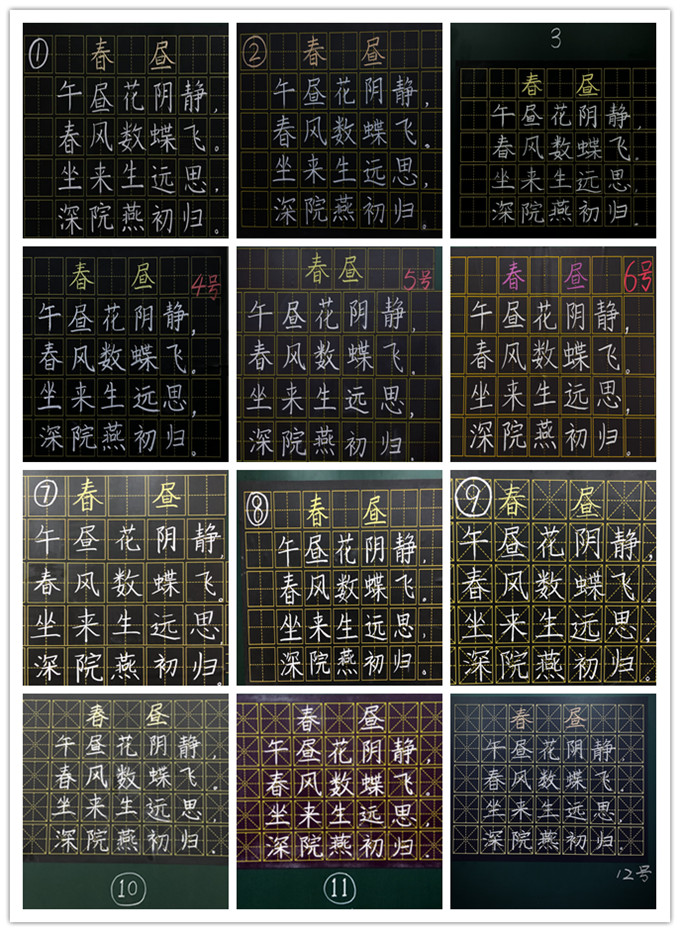 ① 春 昼
午昼花阴静,
春风数蝶飞。
坐来生远思,
深院燕初归。
② 春 昼
午昼花阴静,
春风数蝶飞。
坐来生远思,
深院燕初归。
3
春 昼
午昼花阴静,
春风数蝶飞。
坐来生远思,
深院燕初归。
春 昼 4号
午昼花阴静,
春风数蝶飞。
坐来生远思,
深院燕初归。
春昼 5号
午昼花阴静,
春风数蝶飞。
坐来生远思,
深院燕初归。
春 昼 6号
午昼花阴静,
春风数蝶飞。
坐来生远思,
深院燕初归。
⑦ 春 昼
午昼花阴静,
春风数蝶飞。
坐来生远思,
深院燕初归。
⑧ 春 昼
午昼花阴静,
春风数蝶飞。
坐来生远思,
深院燕初归。
⑨ 春 昼
午昼花阴静,
春风数蝶飞。
坐来生远思,
深院燕初归。
春 昼
午昼花阴静,
春风数蝶飞。
坐来生远思,
深院燕初归。
⑩
春 昼
午昼花阴静,
春风数蝶飞。
坐来生远思,
深院燕初归。
⑪
春 昼
午昼花阴静,
春风数蝶飞。
坐来生远思,
深院燕初归。
12号